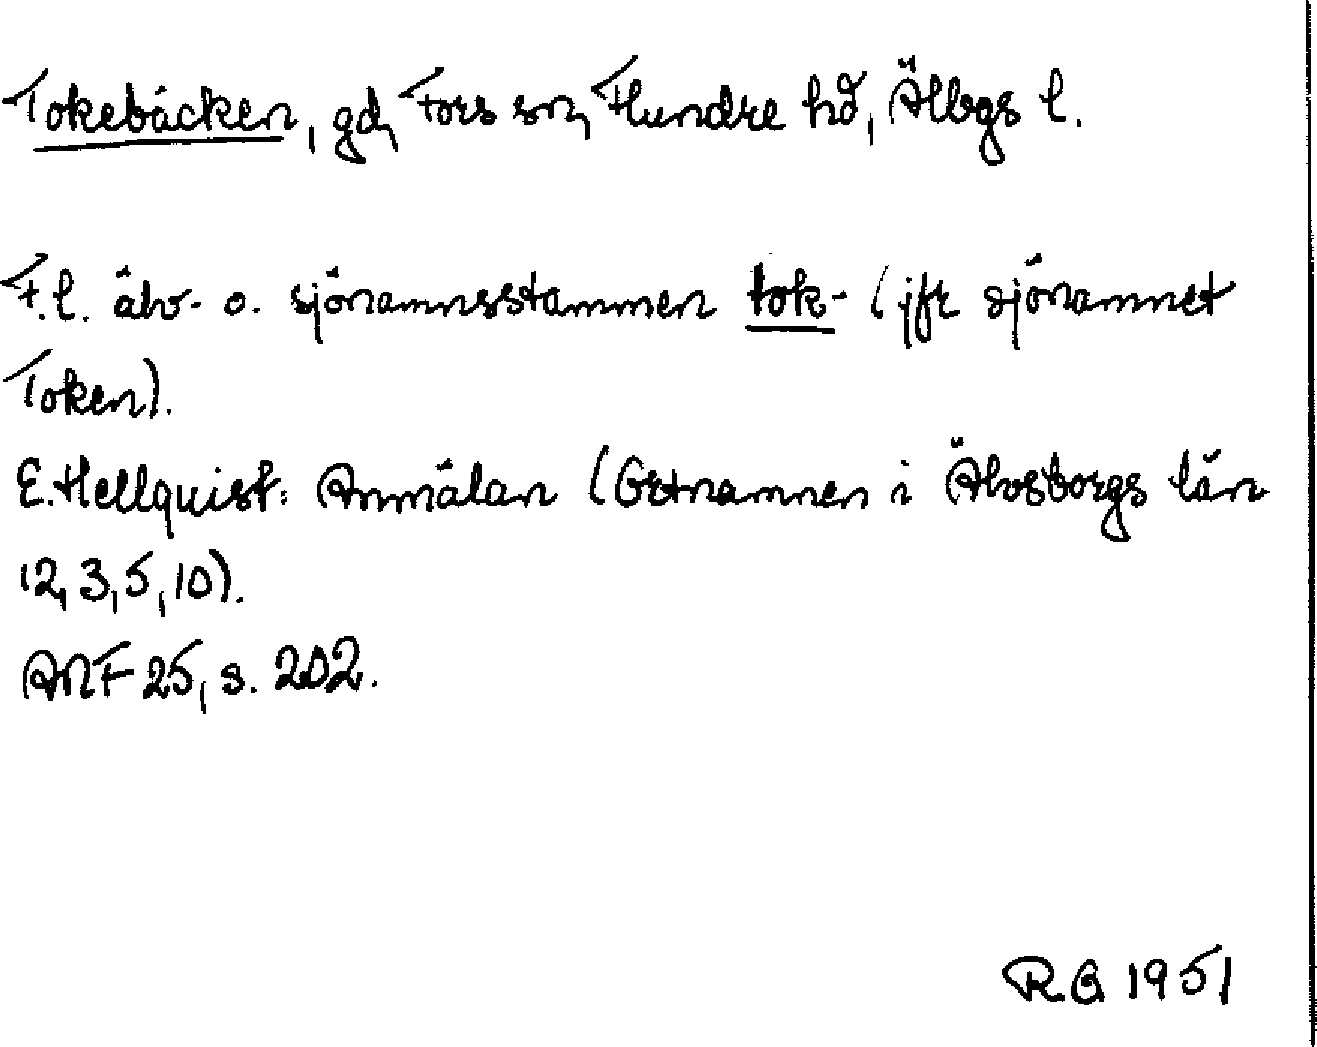 Tokebäcken, gd, Fors sn, Flundre hd, Älbgs l.
F.l. älv- o. sjönamnsstammen tok- (jfr sjönamnet
Token).
E. Hellquist: Anmälan (Ortnamnen i Älvsborgs län
12, 3, 5, 10).
ANF 25, s. 202.
R.G 1951